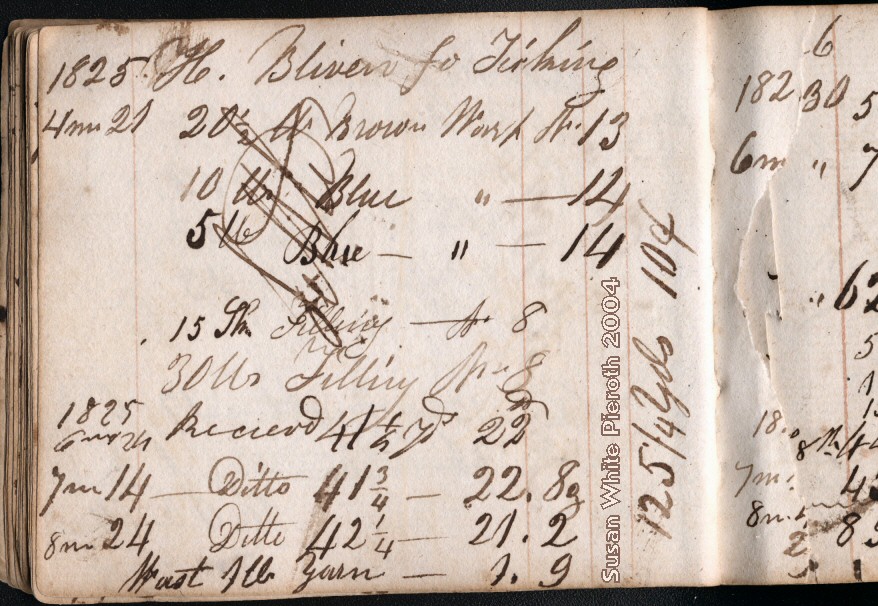 1825 H. Bliven for Ticking
4mo 21 20½ lb Brown Warp No. 13
10 lb Blue " — 14
5 lb Blue — " — 14
15 lb Filling — No 8
30 lbs Filling No 8
1825
6mo Recieved 41½ yd 22
7m 14 — Ditto 41¾ — 22.8
8m 24 Ditto 42¼ — 21.2
Wast 1 lb Yarn — 1.9
125¼ Yds 10¢
Susan White Pieroth 2004
6
182 30 5
6m " 7
" 62
5
18
8th 4
7m
8m 8
2